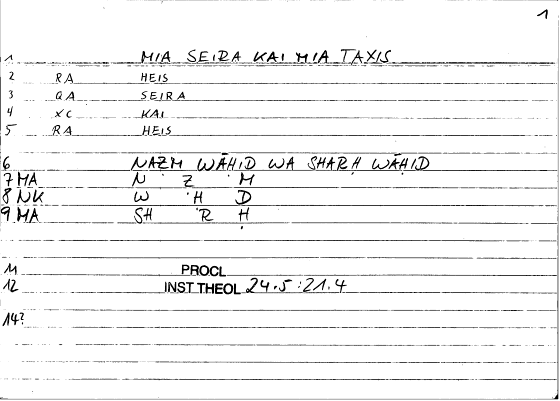 1
1 MIA SEIRA KAI MIA TAXIS
2 RA HEIS
3 QA SEIRA
4 XC KAI
5 RA HEIS
6 NAẒM WĀḤID WA SHARḤ WĀḤID
7 MA N Ẓ M
8 NK W Ḥ D
9 MA SH R Ḥ
11 PROCL
12 INST THEOL 24.5 : 21.4
14?